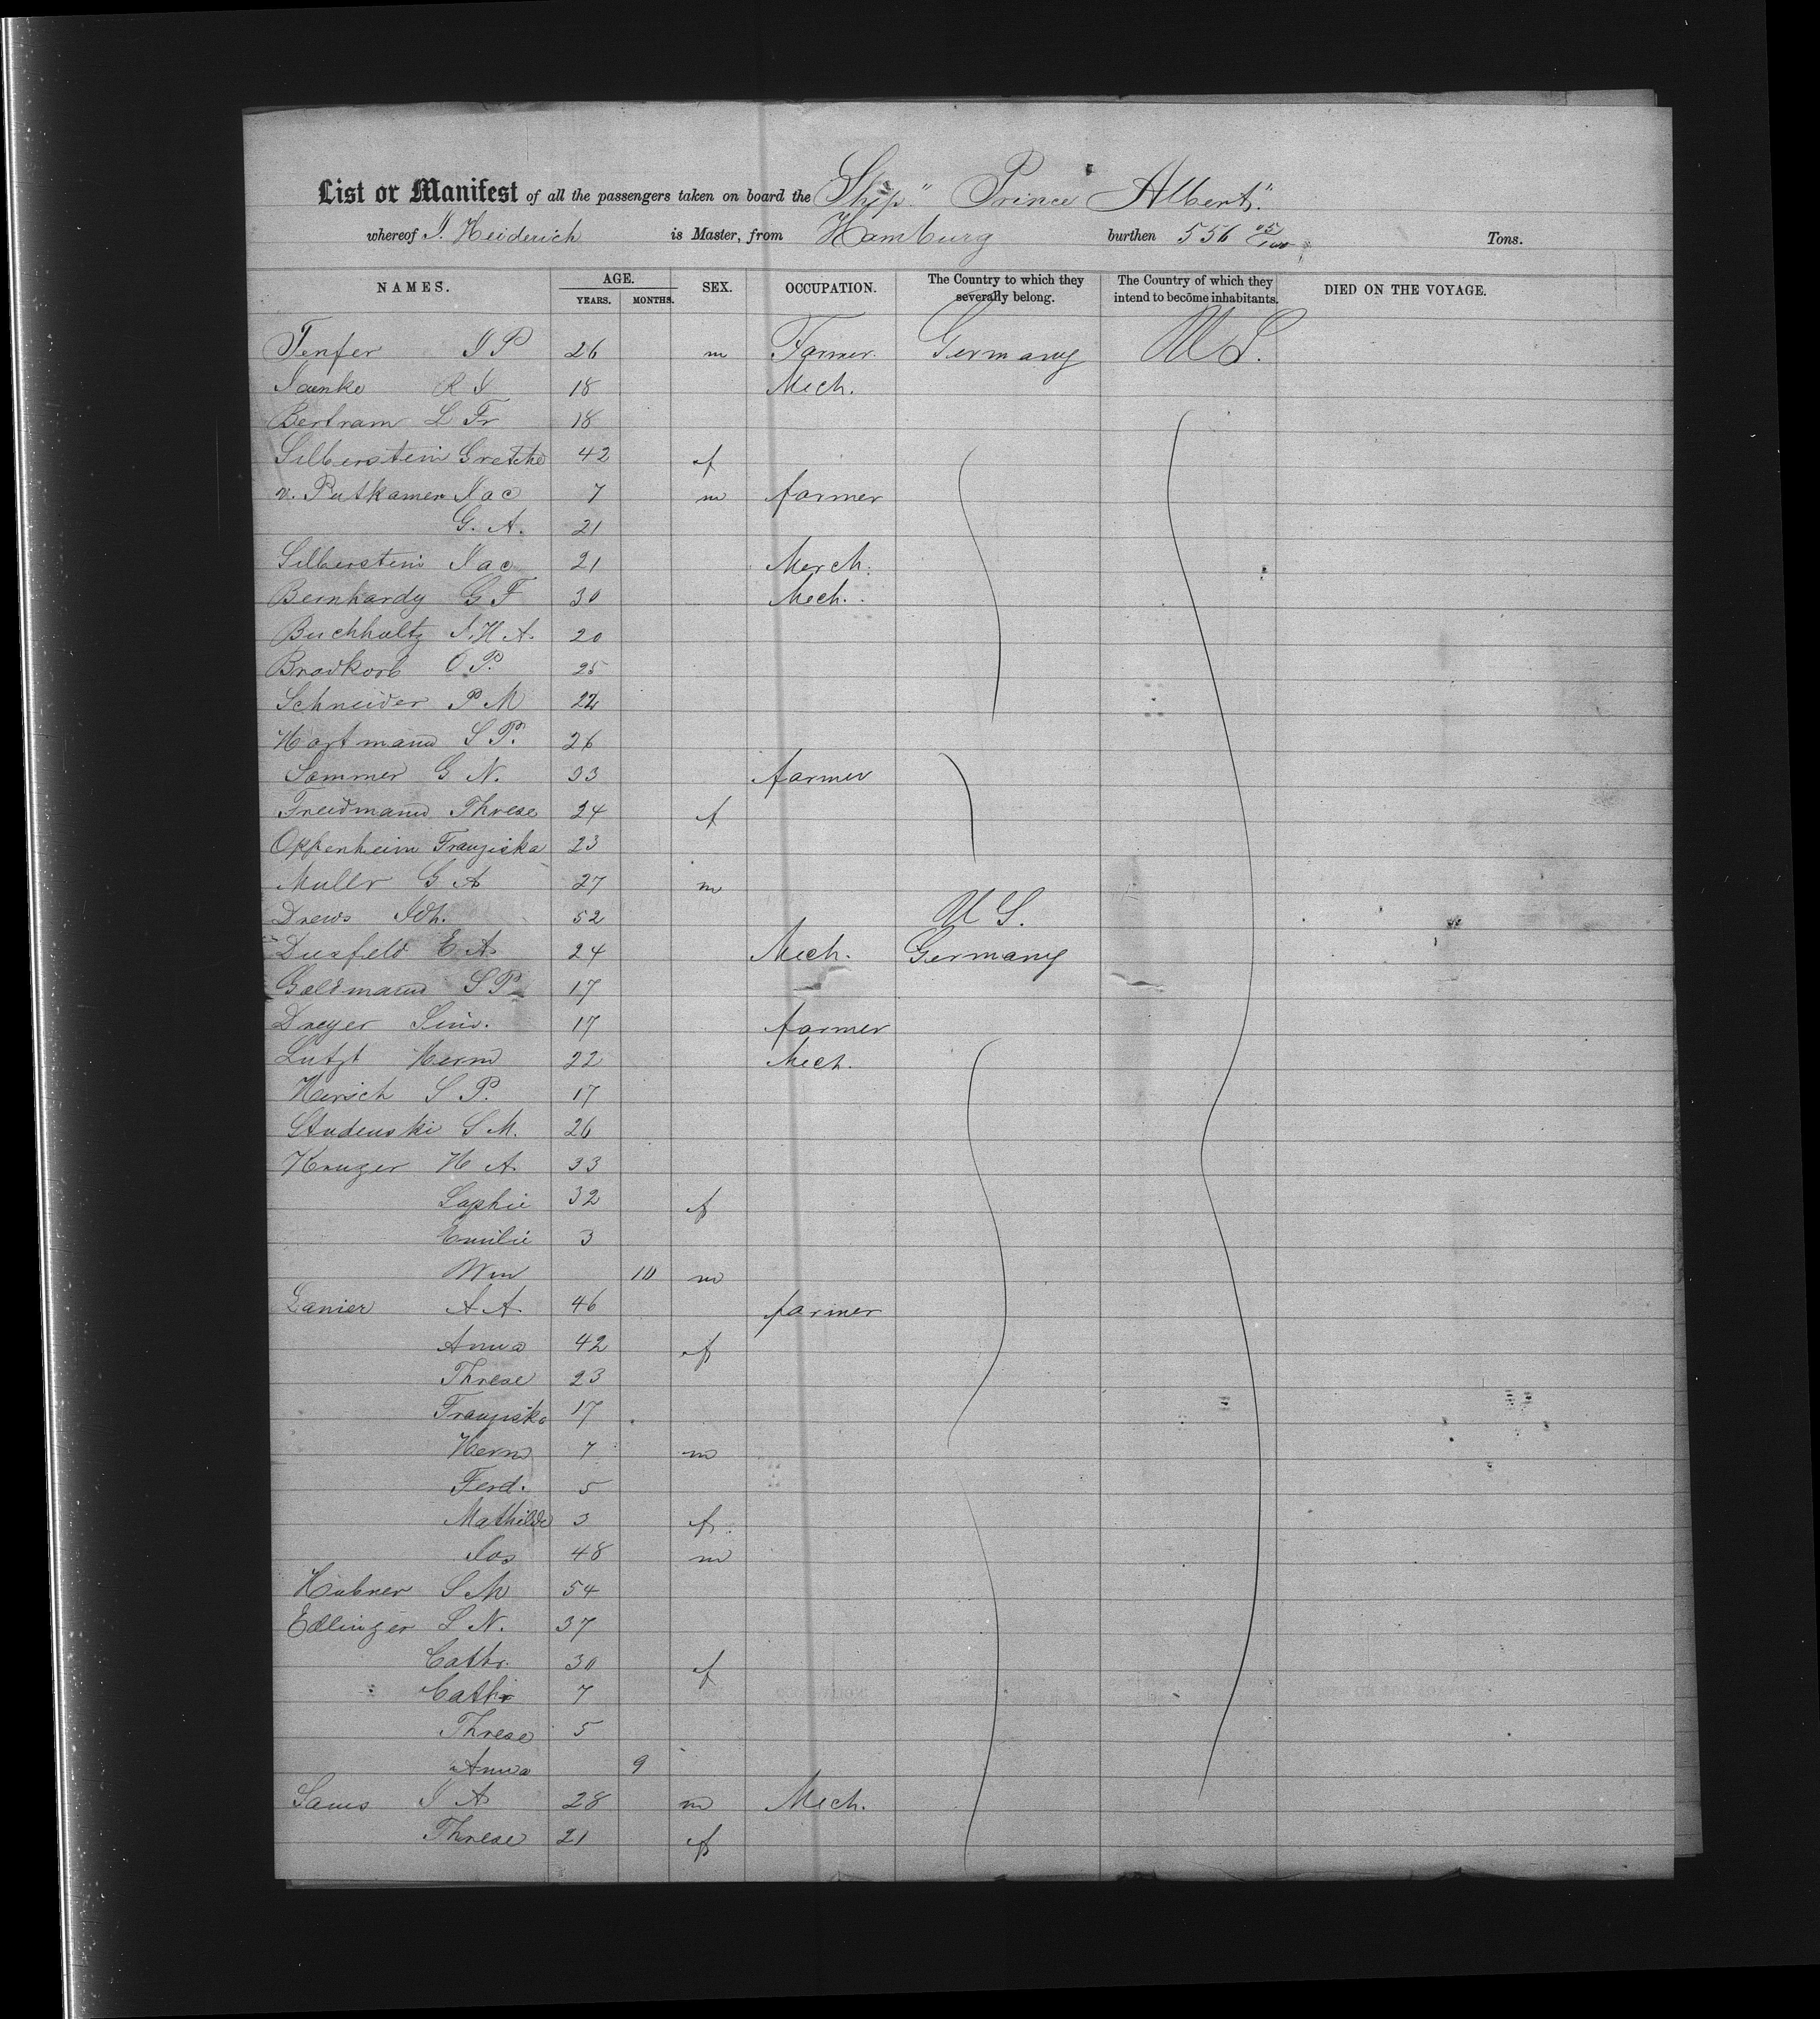 List or Manifest of all the passengers taken on board the Ship "Prince Albert"
whereof J. Heiderich is Master, from Hamburg burthen 556 05/100 Tons.
NAMES. AGE. YEARS. MONTHS. SEX. OCCUPATION. The Country to which they severally belong. The Country of which they intend to become inhabitants. DIED ON THE VOYAGE.
Tenfer J P 26 m Farmer Germany U S.
Jaenke R J 18 Mech.
Bertram L Fr 18
Silberstein Gretche 42 f
v. Putkamer Jac 7 m farmer
G. A. 21
Silberstein Jac 21 Merch.
Bernhardy G F 30 Mech.
Buchholtz J. H A. 20
Brodkorb O P. 25
Schneider P M
Hartmann S P. 26
Sommer G N. 33 farmer
Freidmann Threse 24 f
Oppenheim Franziska 23
Mullr G A 27 m
Drews Joh. 52 U S.
Duesfeld E A 24 Mech. Germany
Goldmann S P 17
Dreyer Sim. 17 farmer
Lutzt Herm 22 Mech.
Hirsch S P. 17
Studenski S M. 26
Kruger H A. 33
Sophie 32 f
Emilie 3
Wm 10 m
Lanier A A. 46 farmer
Anna 42 f
Threse 23
Franziska 17
Herm 7 m
Ferd. 5
Mathilde 3 f.
Jos 48 m
Hubner S M 54
Edlinger S N. 37
Cathr. 30 f
Cathr 7
Threse 5
Anna 9
Sams J A 28 m Mech.
Threse 21 f